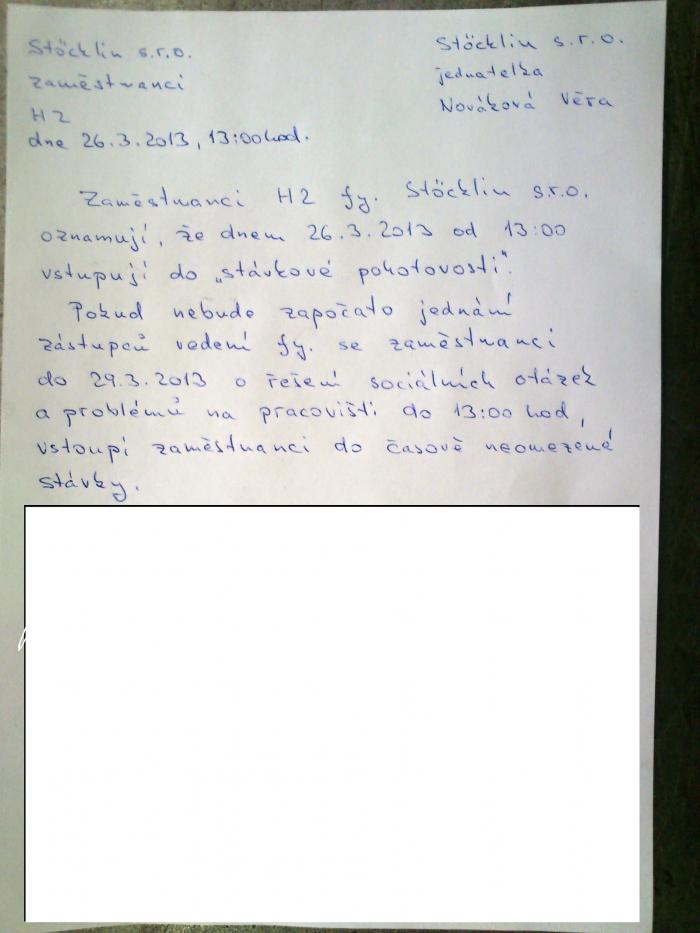 Stöcklin s.r.o.
zaměstnanci
H2
dne 26.3.2013, 13:00hod.
Stöcklin s.r.o.
jednatelka
Nováková Věra
Zaměstnanci H2 fy. Stöcklin s.r.o.
oznamují, že dnem 26.3.2013 od 13:00
vstupují do „stávkové pohotovosti“.
Pokud nebude započato jednání
zástupců vedení fy. se zaměstnanci
do 29.3.2013 o řešení sociálních otázek
a problémů na pracovišti do 13:00 hod,
vstoupí zaměstnanci do časově neomezené
stávky.